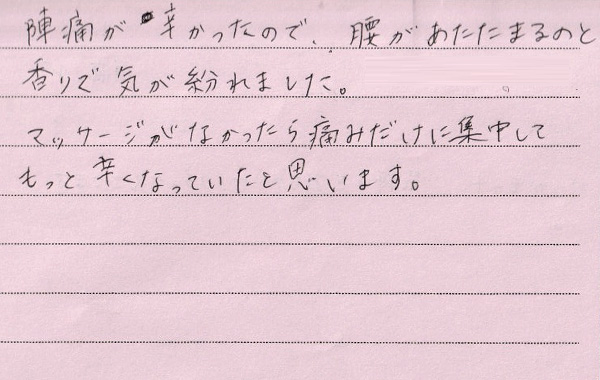 陣痛が辛かったので、腰があたたまるのと
香りで気が紛れました。
マッサージがなかったら痛みだけに集中して
もっと辛くなっていたと思います。